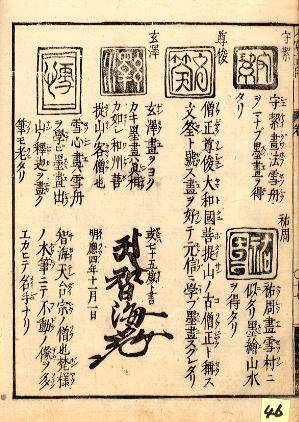 守潔
守潔畫法雪舟
ヲマナブ墨畫ヲ得
タリ
祐周
祐周畫雪村ニ
似タリ墨繪山水
ヲ得タリ
尊俊
僧正尊俊大和國菩提山ノ古僧正ト稱ス
文筌ト號ス畫ヲ好テ元信ヲ學フ墨畫スクレタリ
玄澤
玄澤畫ヲヨク
カキ墨畫真相
カ如シ和州菩
提山ノ客僧也
歳七十五歳ノ書
明應四年十一月一日
智海
雪心畫雪舟
ヲ學ニ墨畫出
山ノ釋迦ヲ畫ク
筆モ老タリ
智海天台宗ノ僧也梵樣
ノ木筆ニテ不動ノ像ヲ多
エカヒテ名チナリ
46